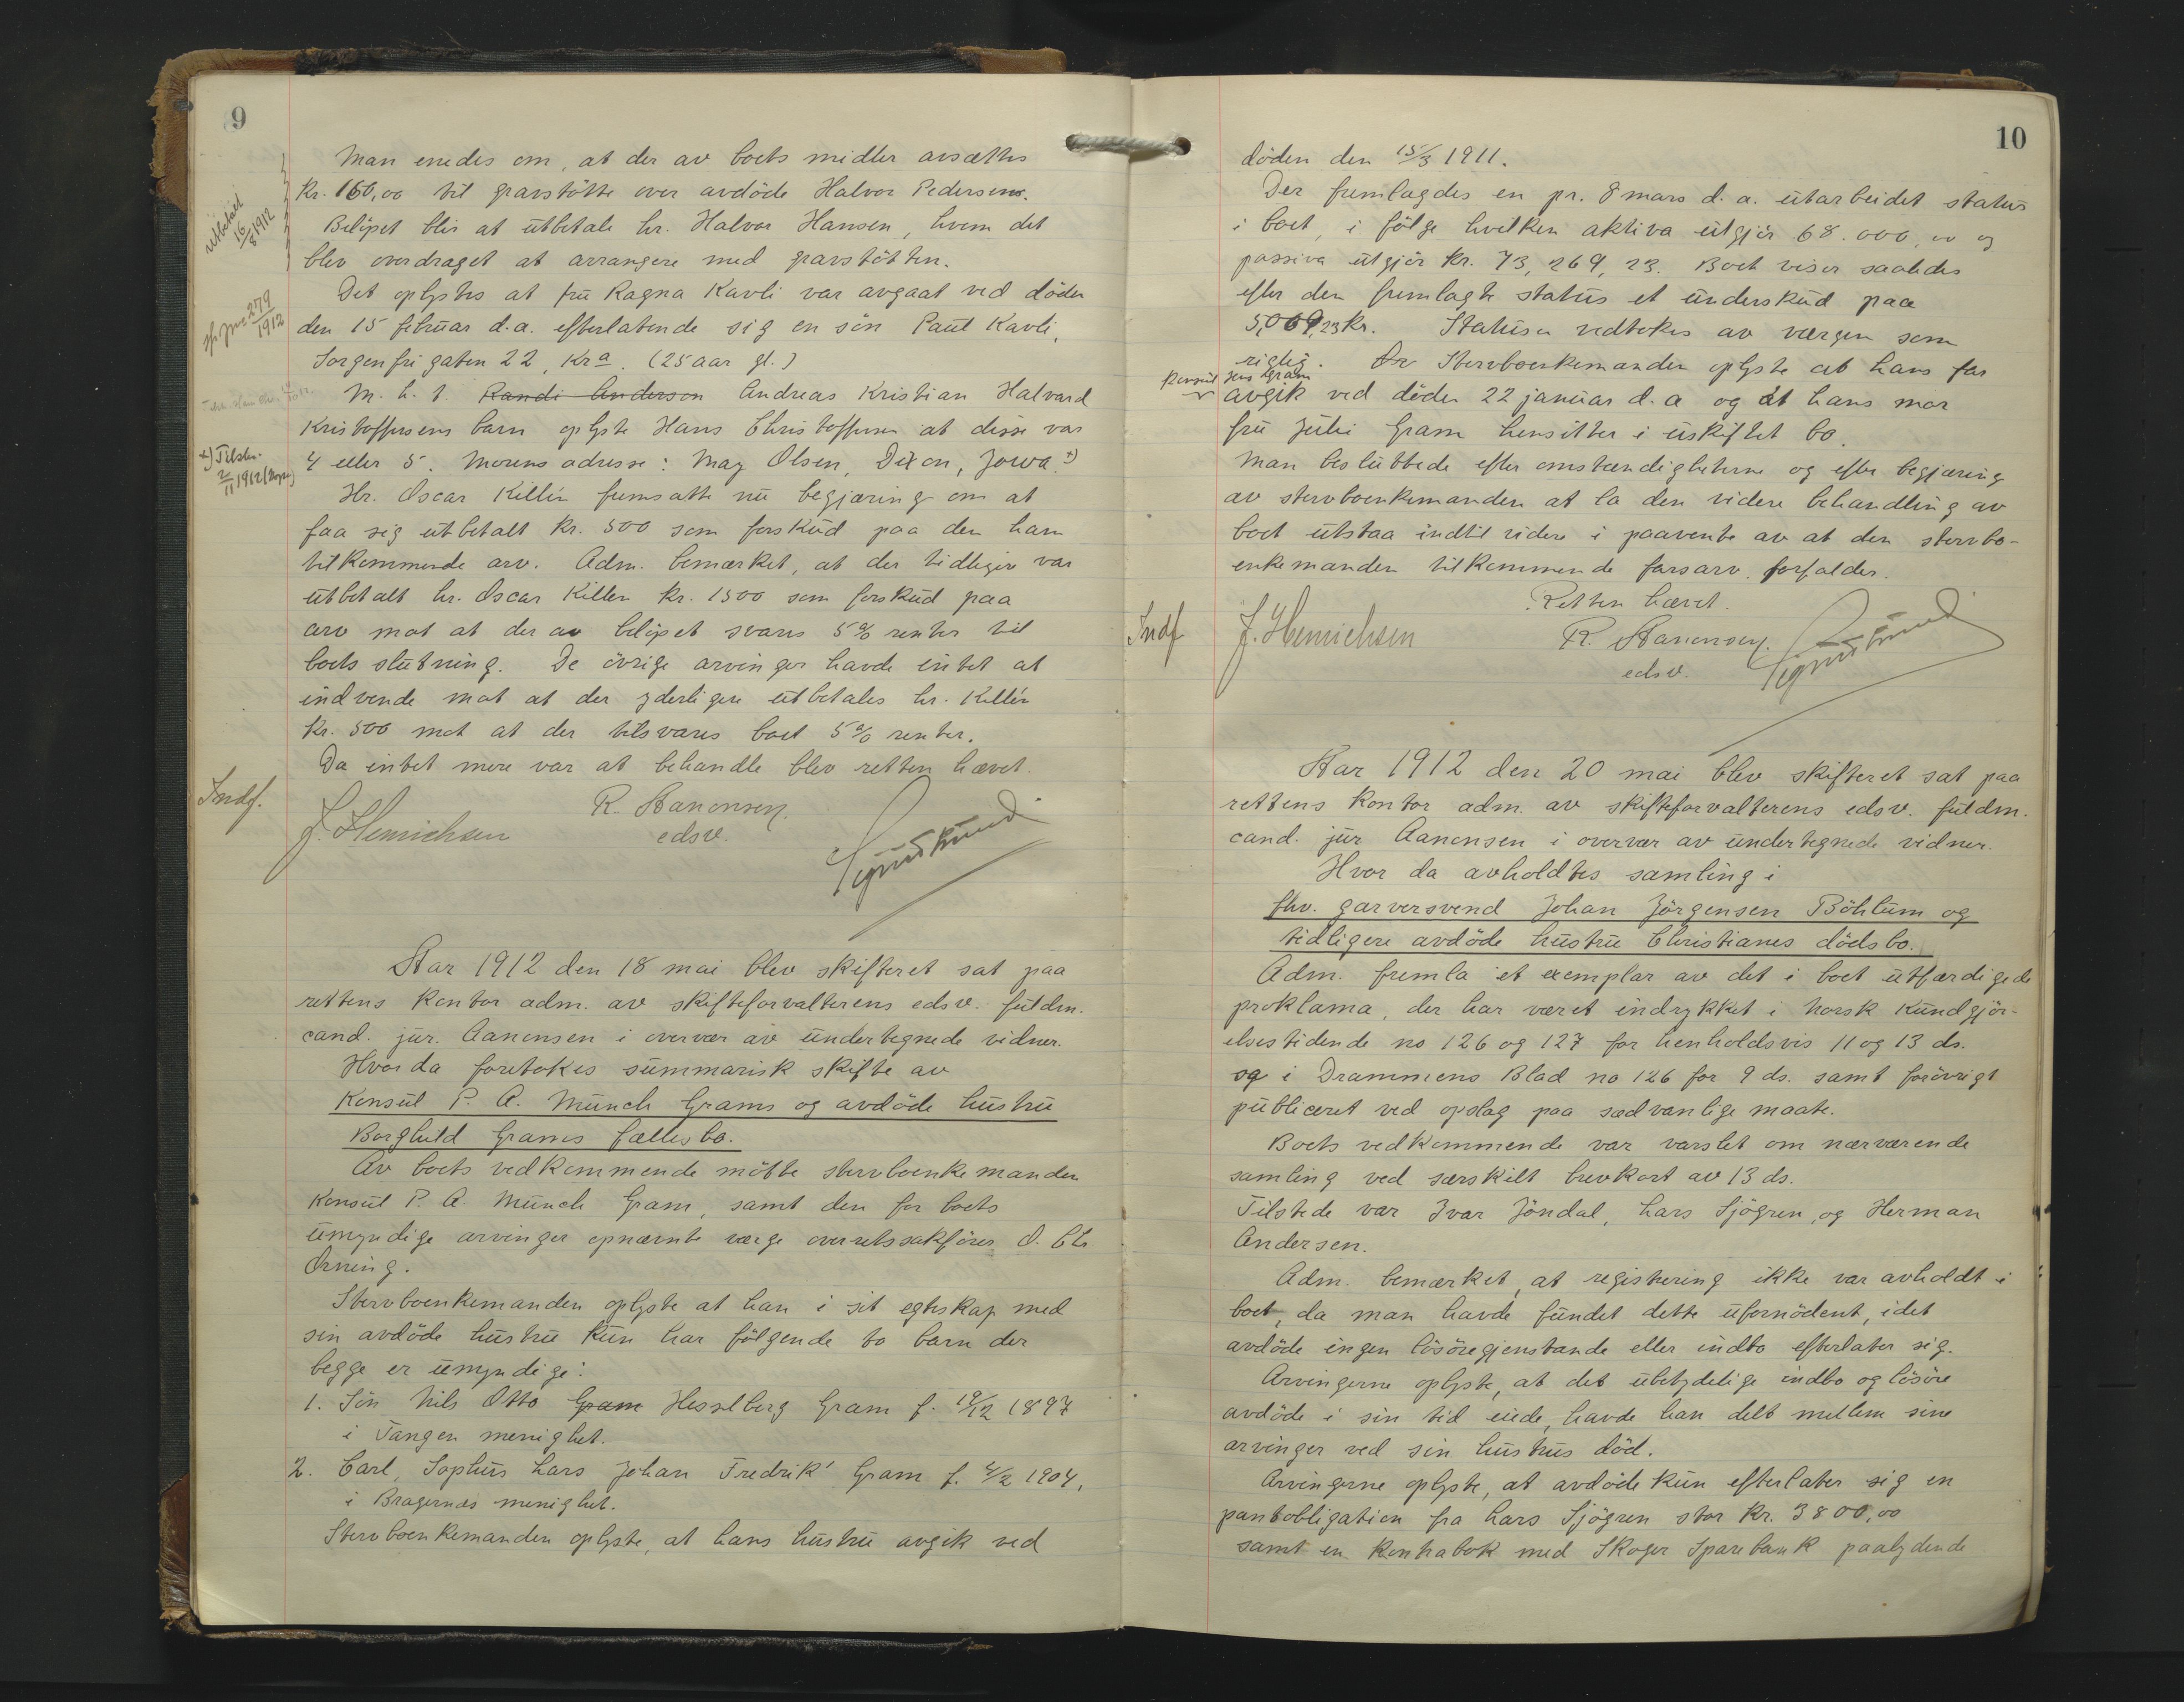 9
Man enedes om, at der av boets midler avsættes
Kr. 160,00 til gravstötte over avdöde Halvor Pedersens.
Belöpet blir at utbetale hr. Halvor Hansen, hvem det
blev overdraget at arrangere med gravstötten.
utbetalt
16/8 1912
Det oplystes at fru Ragna Kavli var avgaat ved döden
den 15 februar d.a. efterlatende sig en sön Paul Kavli,
Sorgenfrigaten 22, Kra. (25 aar gl.)
279
1912
M. h. t. Randi Anderson Andreas Kristian Halvard
Kristoffersens barn oplyste Hans Christoffersen at disse var
4 eller 5. Morens adresse: May Olsen, Dixon, Jowa. x)
x) Tilskr.
2/11 1912
Hr. Oscar Killén fremsatte nu begjæring om at
faa sig utbetalt Kr. 500 som forskud paa den ham
tilkommende arv. Adm. bemærket, at der tidligere var
utbetalt hr. Oscar Killen Kr. 1500 som forskud paa
arv mot at der av belöpet svares 5% renter til
boets slutning. De övrige arvinger havde intet at
indvende mot at der yderligere utbetales hr. Killén
Kr. 500 mot at der tilsvares boet 5% renter.
Da intet mere var at behandle blev retten hævet.
Indf.
J. Henrichsen
R. Aanonsen.
edsv.
Aar 1912 den 18 mai blev skifteret sat paa
rettens kontor adm. av skifteforvalterens edsv. fuldm.
cand. jur. Aanonsen i overvær av undertegnede vidner.
Hvor da foretokes summarisk skifte av
Konsul P. A. Munch Grams og avdöde hustru
Borghild Grams fællesbo.
Av boets vedkommende mötte stervboenkemanden
Konsul P. A. Munch Gram, samt den for boets
umyndige arvinger opnævnte værge overretssakförer O. Chr.
Orning.
Stervboenkemanden oplyste at han i sit egteskap med
sin avdöde hustru kun har fölgende to barn der
begge er umyndige:
1. Sön Nils Otto Gram Hesselberg Gram f. 19/12 1897
i Tangen menighet.
2. Carl, Sophus Lars Johan Fredrik Gram f. 4/2 1904,
i Bragernæs menighet.
Stervboenkemanden oplyste, at hans hustru avgik ved
10
döden den 15/3 1911.
Der fremlagdes en pr. 8 mars d. a. utarbeidet status
i boet, i fölge hvilken aktiva utgjör 68.000,00 og
passiva utgjör Kr. 73,269,23. Boet viser saaledes
efter den fremlagte status et underskud paa
5,069,23 Kr. Statusen vedtokes av værgen som
rigtig. Stervboenkemanden oplyste at hans far
Konsul Jens Gram
avgik ved döden 22 januar d. a og at hans mor
fru Julie Gram hensitter i uskiftet bo.
Man besluttede efter omstændigheterne og efter begjæring
av stervboenkemanden at la den videre behandling av
boet utstaa indtil videre i paavente av at den stervbo-
enkemanden tilkommende farsarv forfalder.
Retten hævet.
Indf
J. Henrichsen
R. Aanonsen.
edsv.
Aar 1912 den 20 mai blev skifteret sat paa
rettens kontor adm. av skifteforvalterens edsv. fuldm.
cand. jur Aanonsen i overvær av undertegnede vidner.
Hvor da avholdtes samling i
fhv. garversvend Johan Jörgensen Böhlum og
tidligere avdöde hustru Christianes dödsbo.
Adm. fremla et exemplar av det i boet utfærdigede
proklama, der har været indrykket i Norsk Kundgjör-
elsestidende no 126 og 127 for henholdsvis 11 og 13 ds.
og i Drammens Blad no 126 for 9 ds. samt forövrigt
publiceret ved opslag paa sædvanlige maate.
Boets vedkommende var varslet om nærværende
samling ved særskilt brevkort av 13 ds.
Tilstede var Ivar Jöndal, Lars Sjögren, og Herman
Andersen.
Adm. bemærket, at registrering ikke var avholdt i
boet, da man havde fundet dette ufornödent, idet
avdöde ingen lösöregjenstande eller indbo efterlater sig.
Arvingerne oplyste, at det ubetydelige indbo og lösöre
avdöde i sin tid eiede, havde han delt mellem sine
arvinger ved sin hustrus död.
Arvingerne oplyste, at avdöde kun efterlater sig en
pantobligation fra Lars Sjögren stor Kr. 3800,00
samt en kontrabok med Skoger Sparebank paalydende